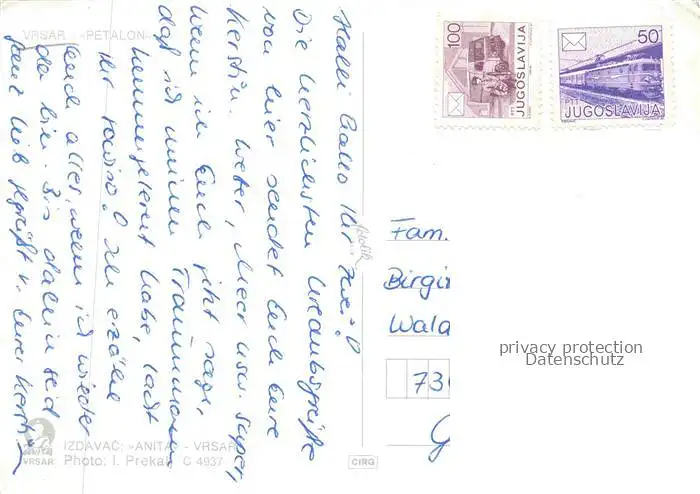 VRSAR - »PETALON«
Halli Hallo Ihr Zwei!
Die herzlichsten Urlaubsgrüße
von hier sendet Euch Eure
Kerstin. Wetter, Meer usw. super,
wenn ich Euch jetzt sage,
daß ich meinen Traummann
kennengelernt habe, lacht
Ihr sowiso! Ich erzähle
Euch alles, wenn ich wieder
da bin. Bis dahin seid
ganz lieb gegrüßt v. Eurer Kerstin
ANITA
VRSAR
IZDAVAČ: »ANITA« - VRSAR
Photo: I. Prekalj Č 4937
CIRG
100
PTT JUGOSLAVIJA
50
PTT JUGOSLAVIJA
Fam.
Birgi
Wala
73
G
privacy protection
Datenschutz